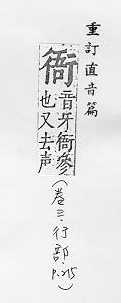 重訂直音篇
衙
音牙衙參
也又去声
(卷三·行部·P.25)